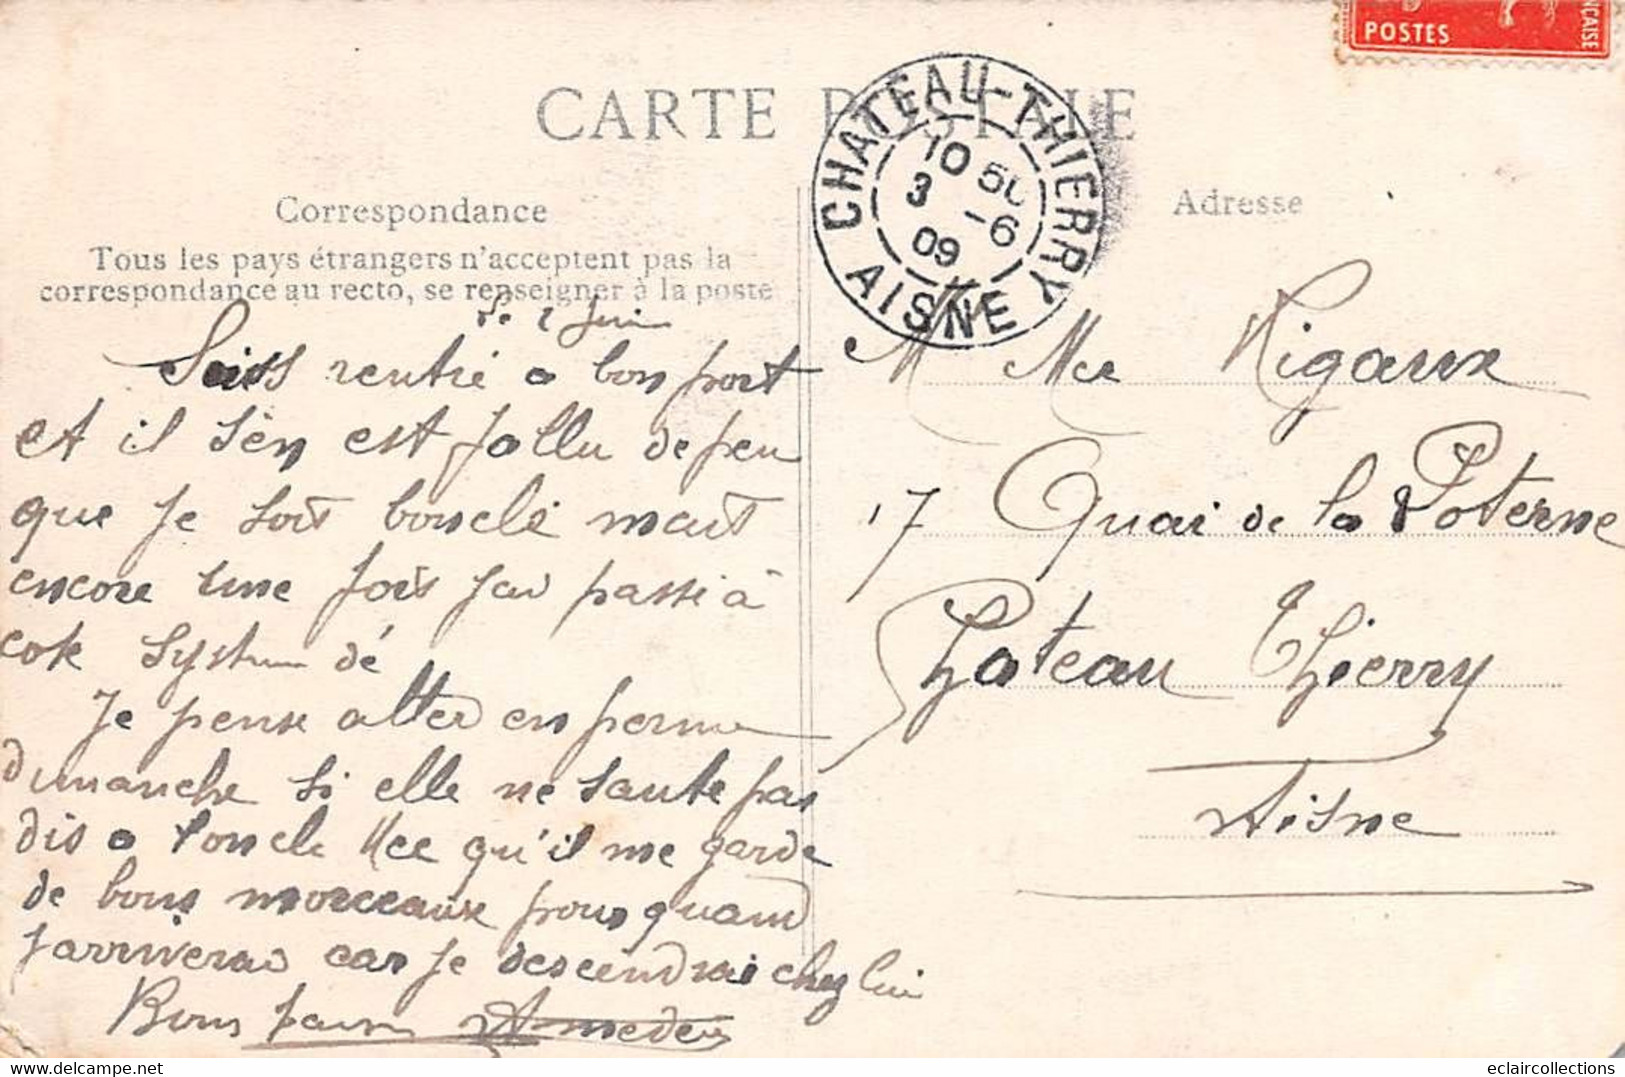 POSTES
ÇAISE
CARTE POSTALE
CHATEAU-THIERRY
10 50
3 -6
09
AISNE
Correspondance
Adresse
Tous les pays étrangers n'acceptent pas la
correspondance au recto, se renseigner à la poste
le 2 Juin
Suis rentré a bon port
et il s'en est fallu de peu
que je sois bouclé mais
encore une fois j'ai passé à
coté
Je pense aller en perme
dimanche si elle ne saute pas
dis a l'oncle Mce qu'il me garde
de bons morceaux pour quand
j'arriverai car je descendrai chez lui
Amédée
M Mce Rigaux
17 Quai de la Poterne
Chateau Thierry
Aisne
https://www.delcampe.net
eclaircollections